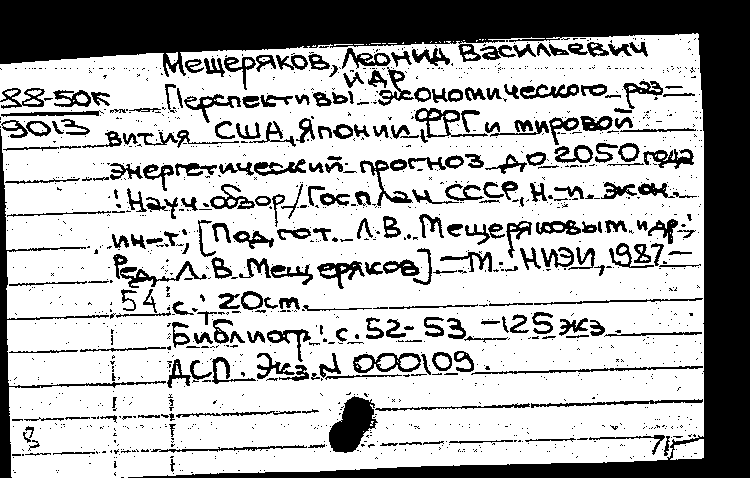 Мещеряков, Леонид Васильевич
и др
88-50к Перспективы экономического раз-
9013 вития США, Японии, ФРГ и мировой
энергетический прогноз до 2050 года
: Науч. обзор / Госплан СССР, Н.-и. экон.
ин-т; [Подгот. Л.В. Мещеряковым и др.;
Ред. Л.В. Мещеряков]. — М. : НИЭИ, 1987. —
54 с.; 20 см.
Библиогр: с. 52-53. - 125 экз.
ДСП. Экз. N 000109.
8